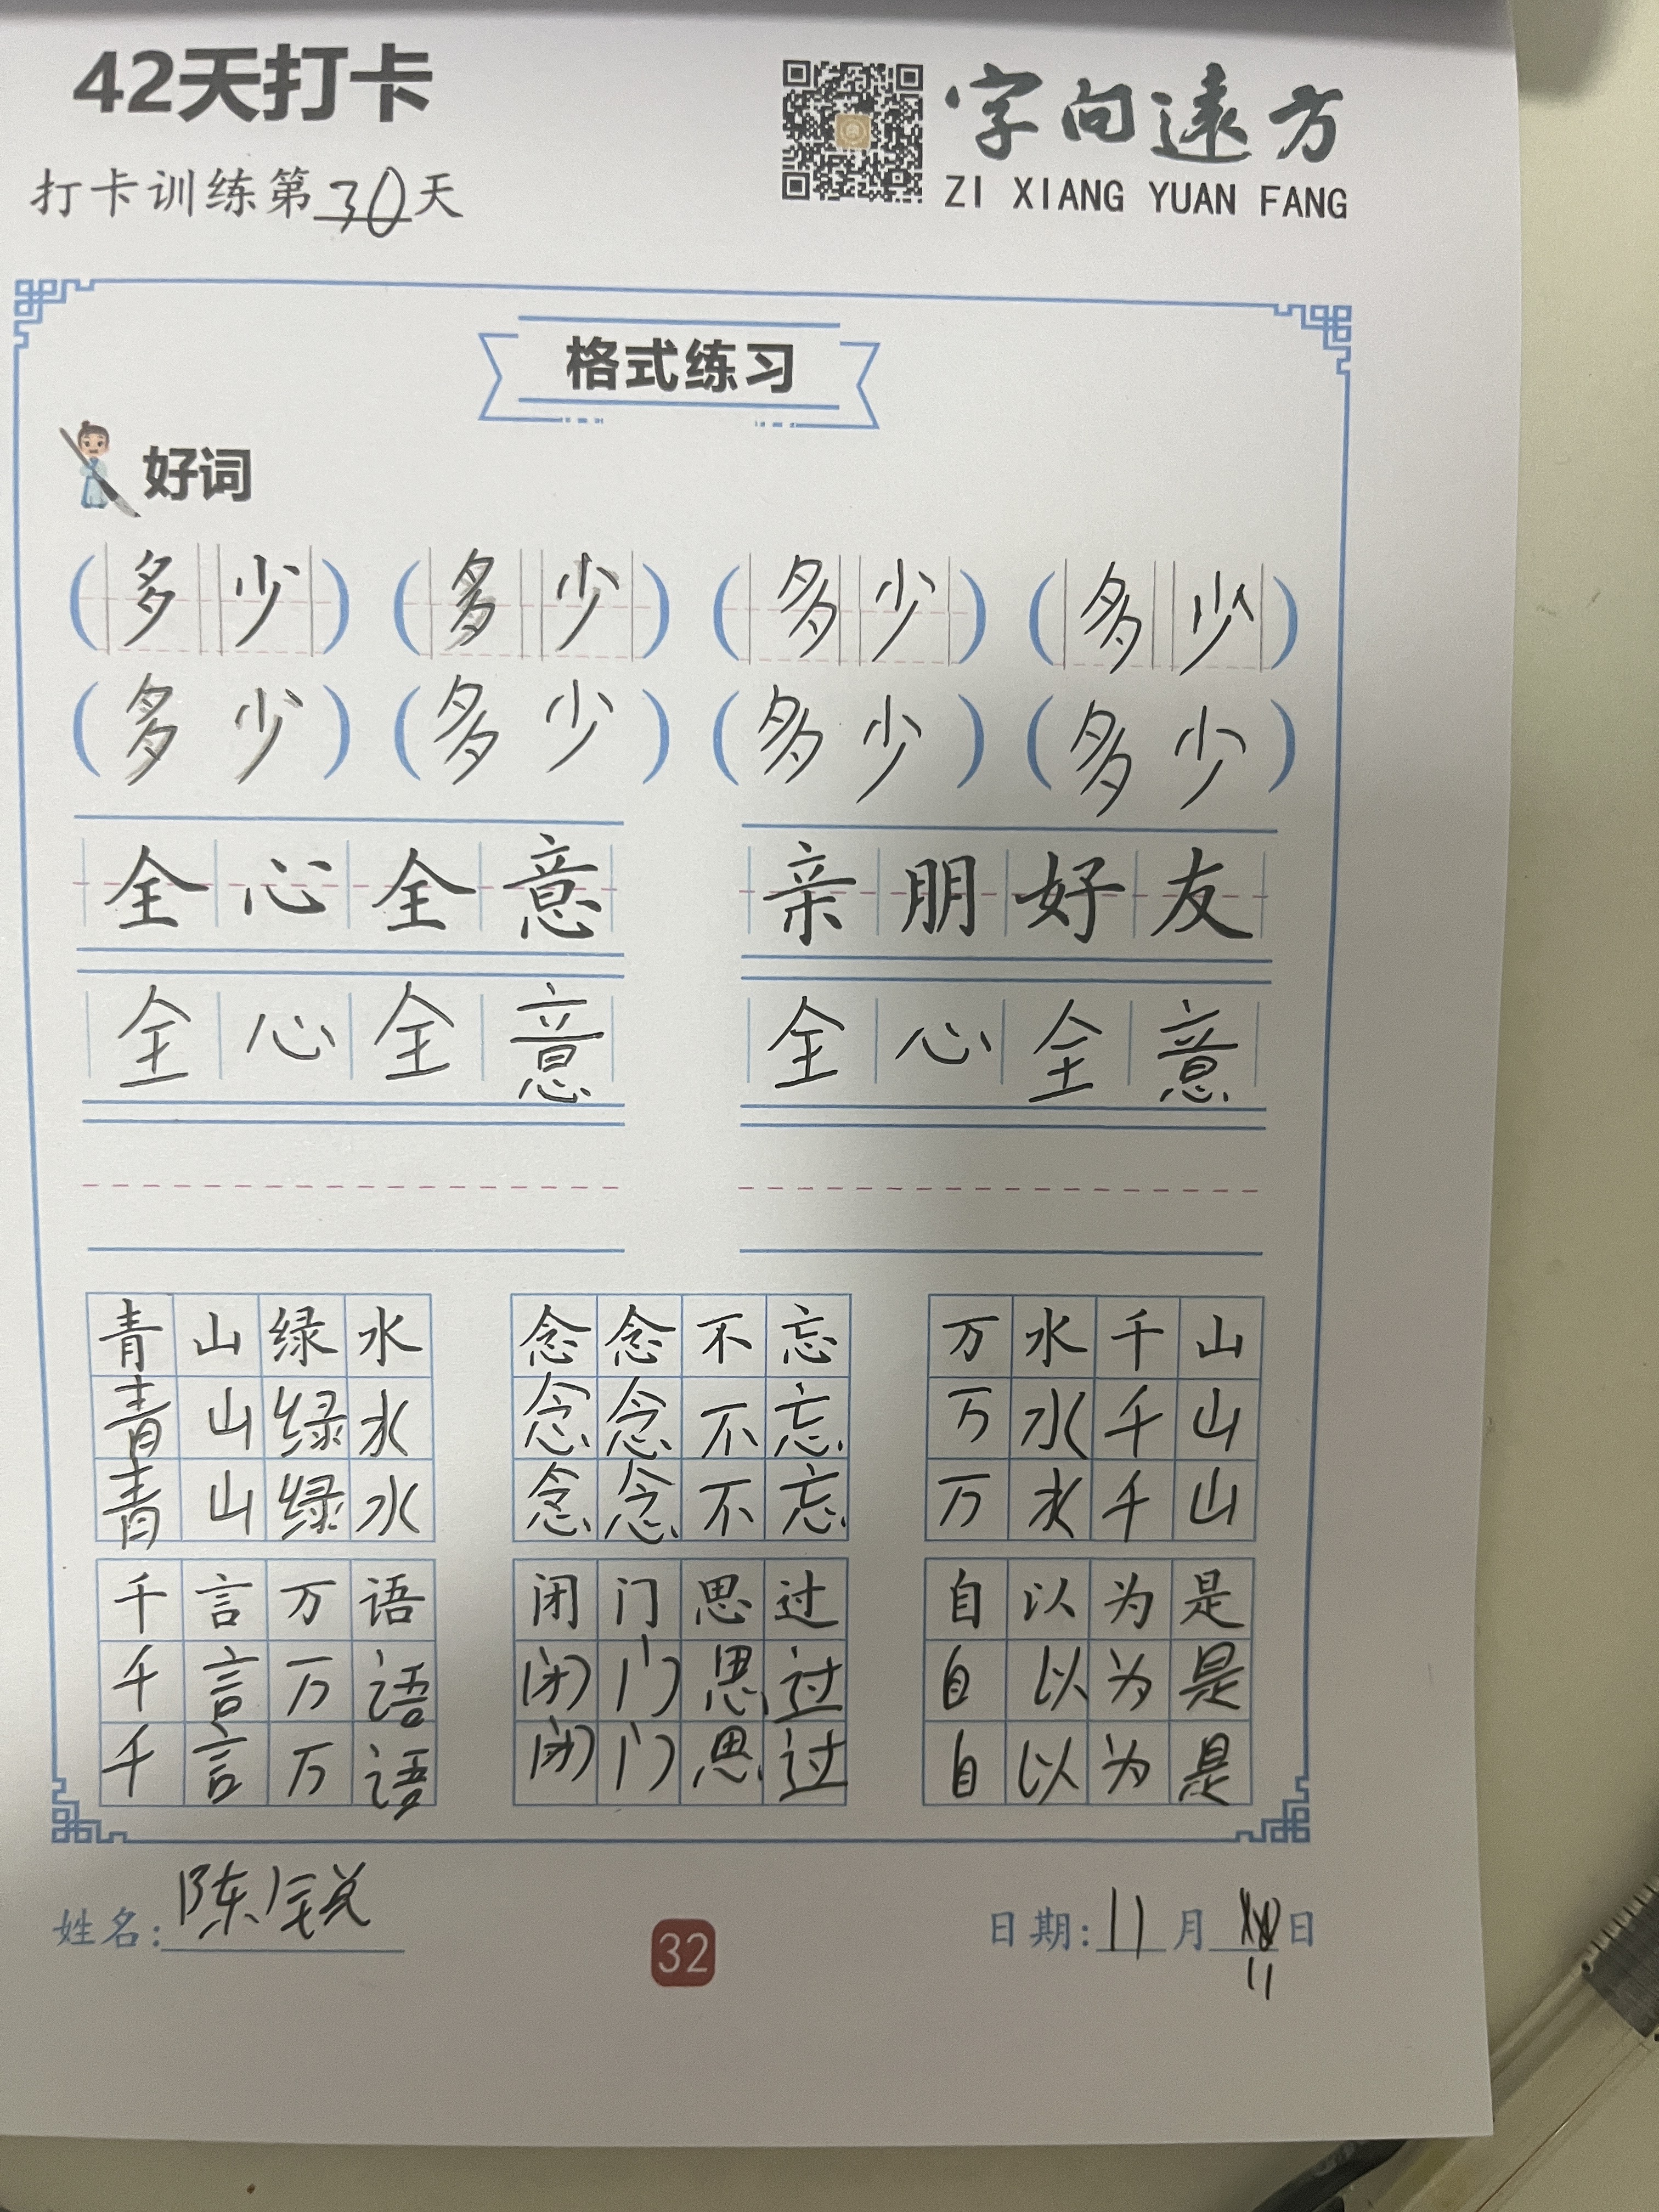 42天打卡
字向遠方
打卡训练第30天
ZI XIANG YUAN FANG
格式练习
好词
(多少) (多少) (多少) (多少)
(多少) (多少) (多少) (多少)
全心全意 亲朋好友
全心全意 全心全意
青山绿水 念念不忘 万水千山
青山绿水 念念不忘 万水千山
青山绿水 念念不忘 万水千山
千言万语 闭门思过 自以为是
千言万语 闭门思过 自以为是
千言万语 闭门思过 自以为是
姓名:陈锐
32
日期:11月 日
11